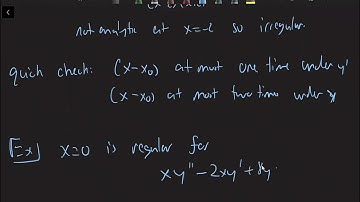 not analytic at x=-2 so irregular.
quick check: (x-x₀) at most one time under y'
(x-x₀) at most two times under y
[Ex] x=0 is regular for
xy"-2xy'+8y